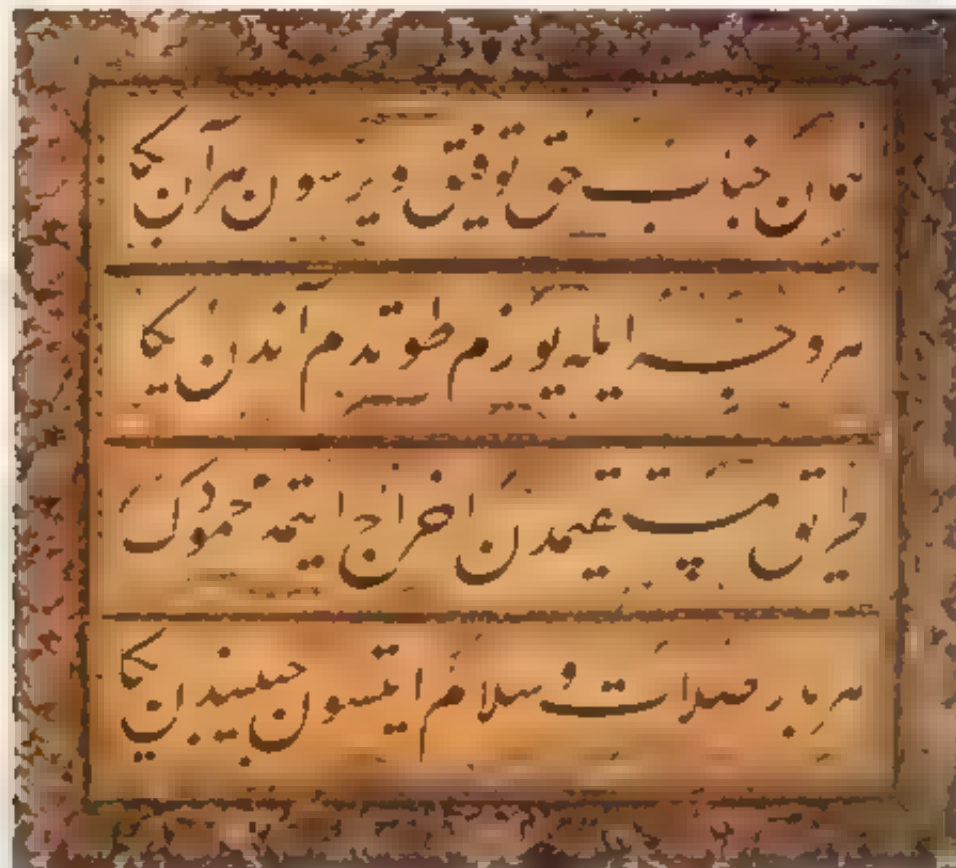 همان جناب حق توفیق ویرسون هر آن بکا
هر وجه ایله یوزم طوتدم آندن یکا
طریق مستقیمدن اخراج ایتمه محمودک
هر بار صلات و سلام ایتسون